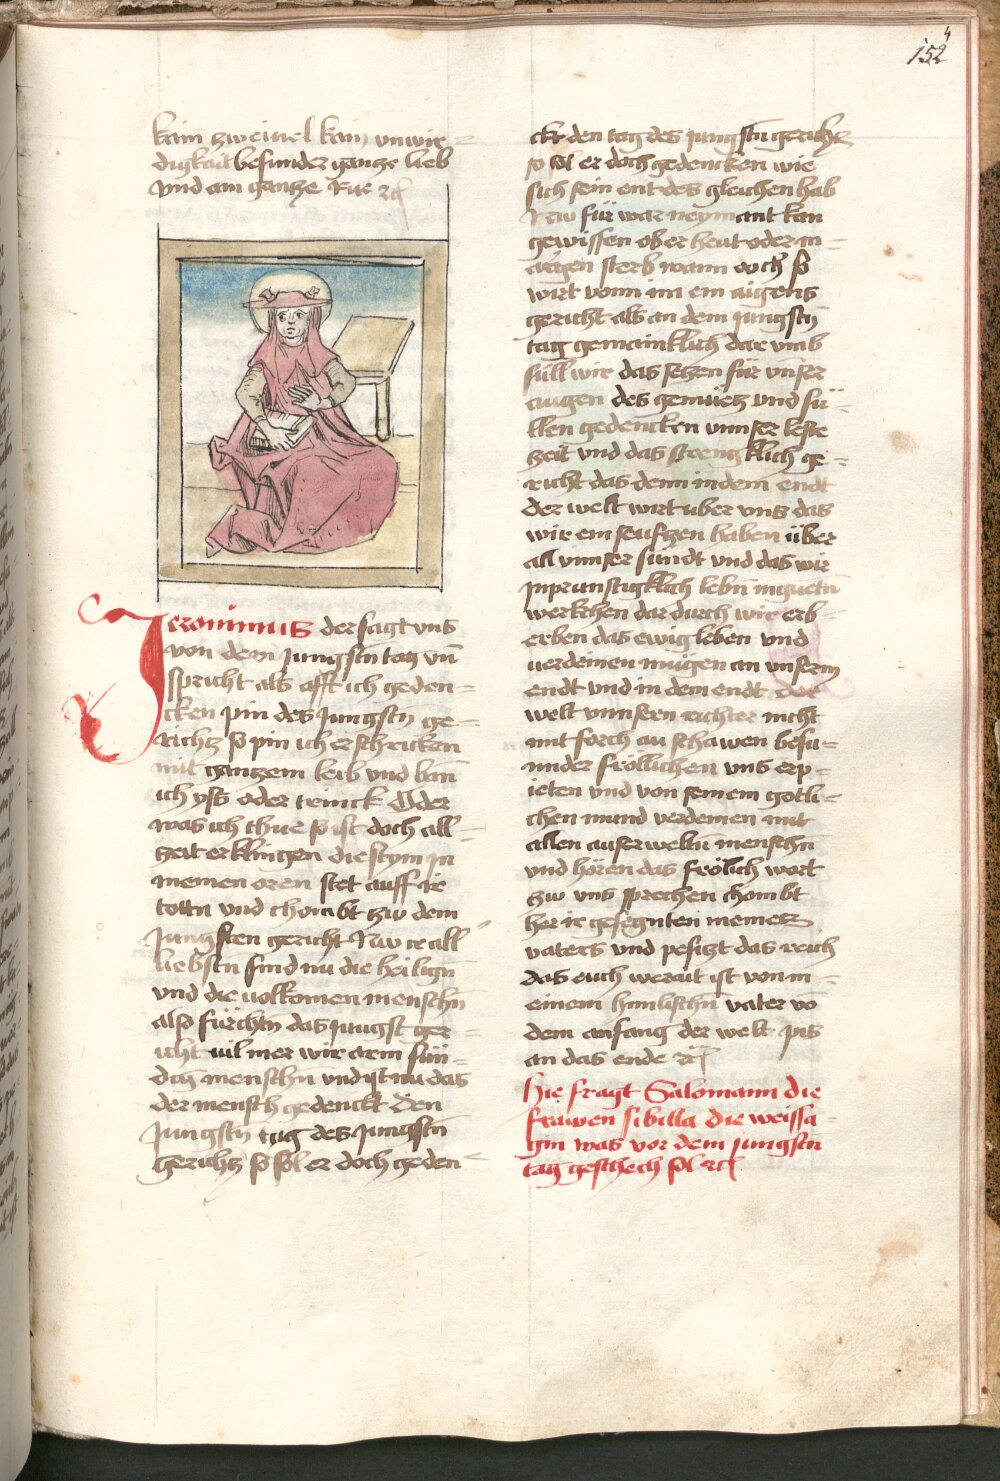 152
kain zweiuel kain unwir=
digkait besunder gancze lieb
vnd ain gantze Rue ꝛc
Jeronimus der sagt vns
von dem jungstn tag vn̄
spricht als offt ich geden=
cken pin des jungstn ge=
richtz so pin ich erschricken
mit gantzem leib vnd bañ
ich yss oder trinck Oder
was ich thue so ist doch all=
zeit erklingen die stym jn
meinen oren stet auff ir
totn vnd chombt zw dem
jungsten gericht Nw ir all
liebstn sind nu die heilign
vnd die uolkomen menschn
also fürchtn das jungst ger=
icht uil mer wir arm sün=
dign menschn vnd ist nu das
der mensch gedenckt den
jungstn tag des jungstn
gerichtz so sol er doch geden=
ckt den tag des jungstn gerichtz
so sol er doch gedencken wie
sich sein ent des gleichen hab
Nw für war neymant kan
gewissen ob er heut oder m=
argen sterb wann doch so
wirt vonn im ein aigens
gericht als an dem jungstn
tag gemainklich dar vmb
sull wir das setzen für vnser
augen des gemüetz vnd sü=
llen gedencken vnnser leste
zeit vnd das strengklich ge=
richt das denn in dem endt
der welt wirt über vns das
wir ein seufczen haben über
all vnnser sundt vnd das wir
jnprunstigklich lebn in guetn
werckhen dar durch wir erb=
erben das ewig leben vnd
uerdeinen mügen an vnserm
endt vnd in dem endt der
welt vnnsern richter nicht
mit forch an schawen besu=
nnder frölichen vns erp=
ieten vnd von seinem götli=
chen mund verdeinen mit
allen auserweltn menschn
vnd hören das frölich wort
zw vns sprechen chombt
her ir gesegnten meines
vaters vnd pesitzt das reich
das euch werait ist von m=
einem himlischn vater vo
dem anfang der welt pis
an das ende ꝛc
Hie fragt Salomann die
frawen sibilla die weissa=
gin was vor dem jungstn
tag geschech sol ꝛc